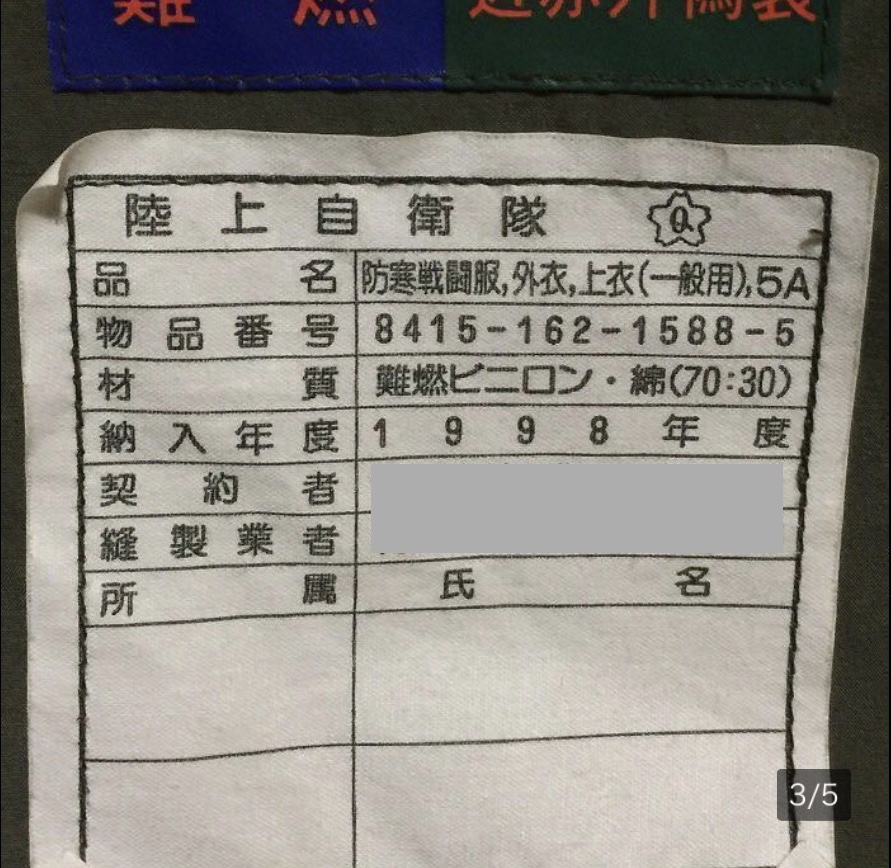 難燃 近赤外偽装
陸上自衛隊 Q
品名 防寒戦闘服,外衣,上衣(一般用),5A
物品番号 8415-162-1588-5
材質 難燃ビニロン・綿(70:30)
納入年度 1998年度
契約者
縫製業者
所属 氏名
3/5